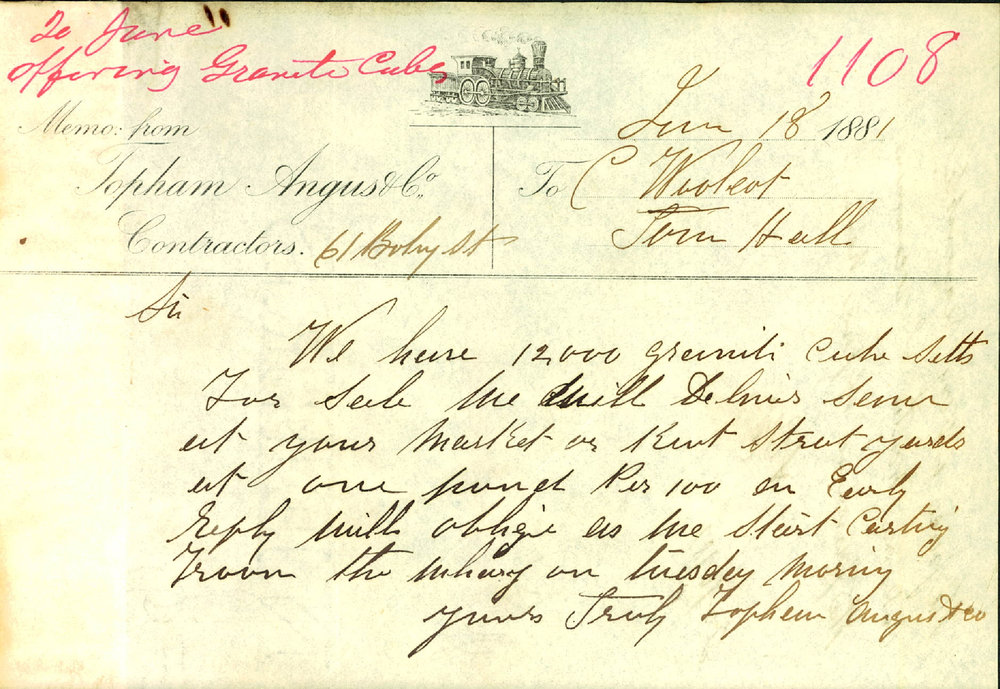 20 June
Offering Granite Cubes
1108
Memo: from
Topham Angus & Co.
Contractors. 61 St
June 18 1881
To C Woolcot
Town Hall
Sir
We have 12,000 granite Cube Setts
For Sale we will Deliver same
at your Market or Kent Street yards
at one pound Per 100 an Early
reply will oblige as we Start Carting
From the wharf on tuesday Morning
yours Truly Topham Angus & co